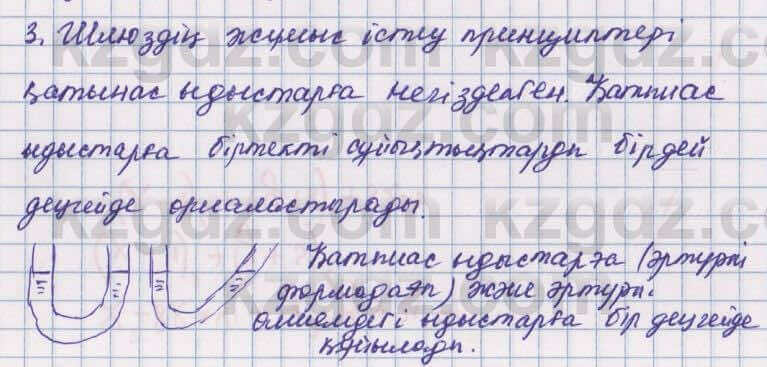 3. Шлюздің жұмыс істеу принциптері
қатынас ыдыстарға негізделген. Қатынас
ыдыстарға біртекті сұйықтықтарды бірдей
деңгейде орналастырады.
Қатынас ыдыстарға (әртүрлі
формадағы) және әртүрлі
өлшемдегі ыдыстарға бір деңгейде
құйылады.